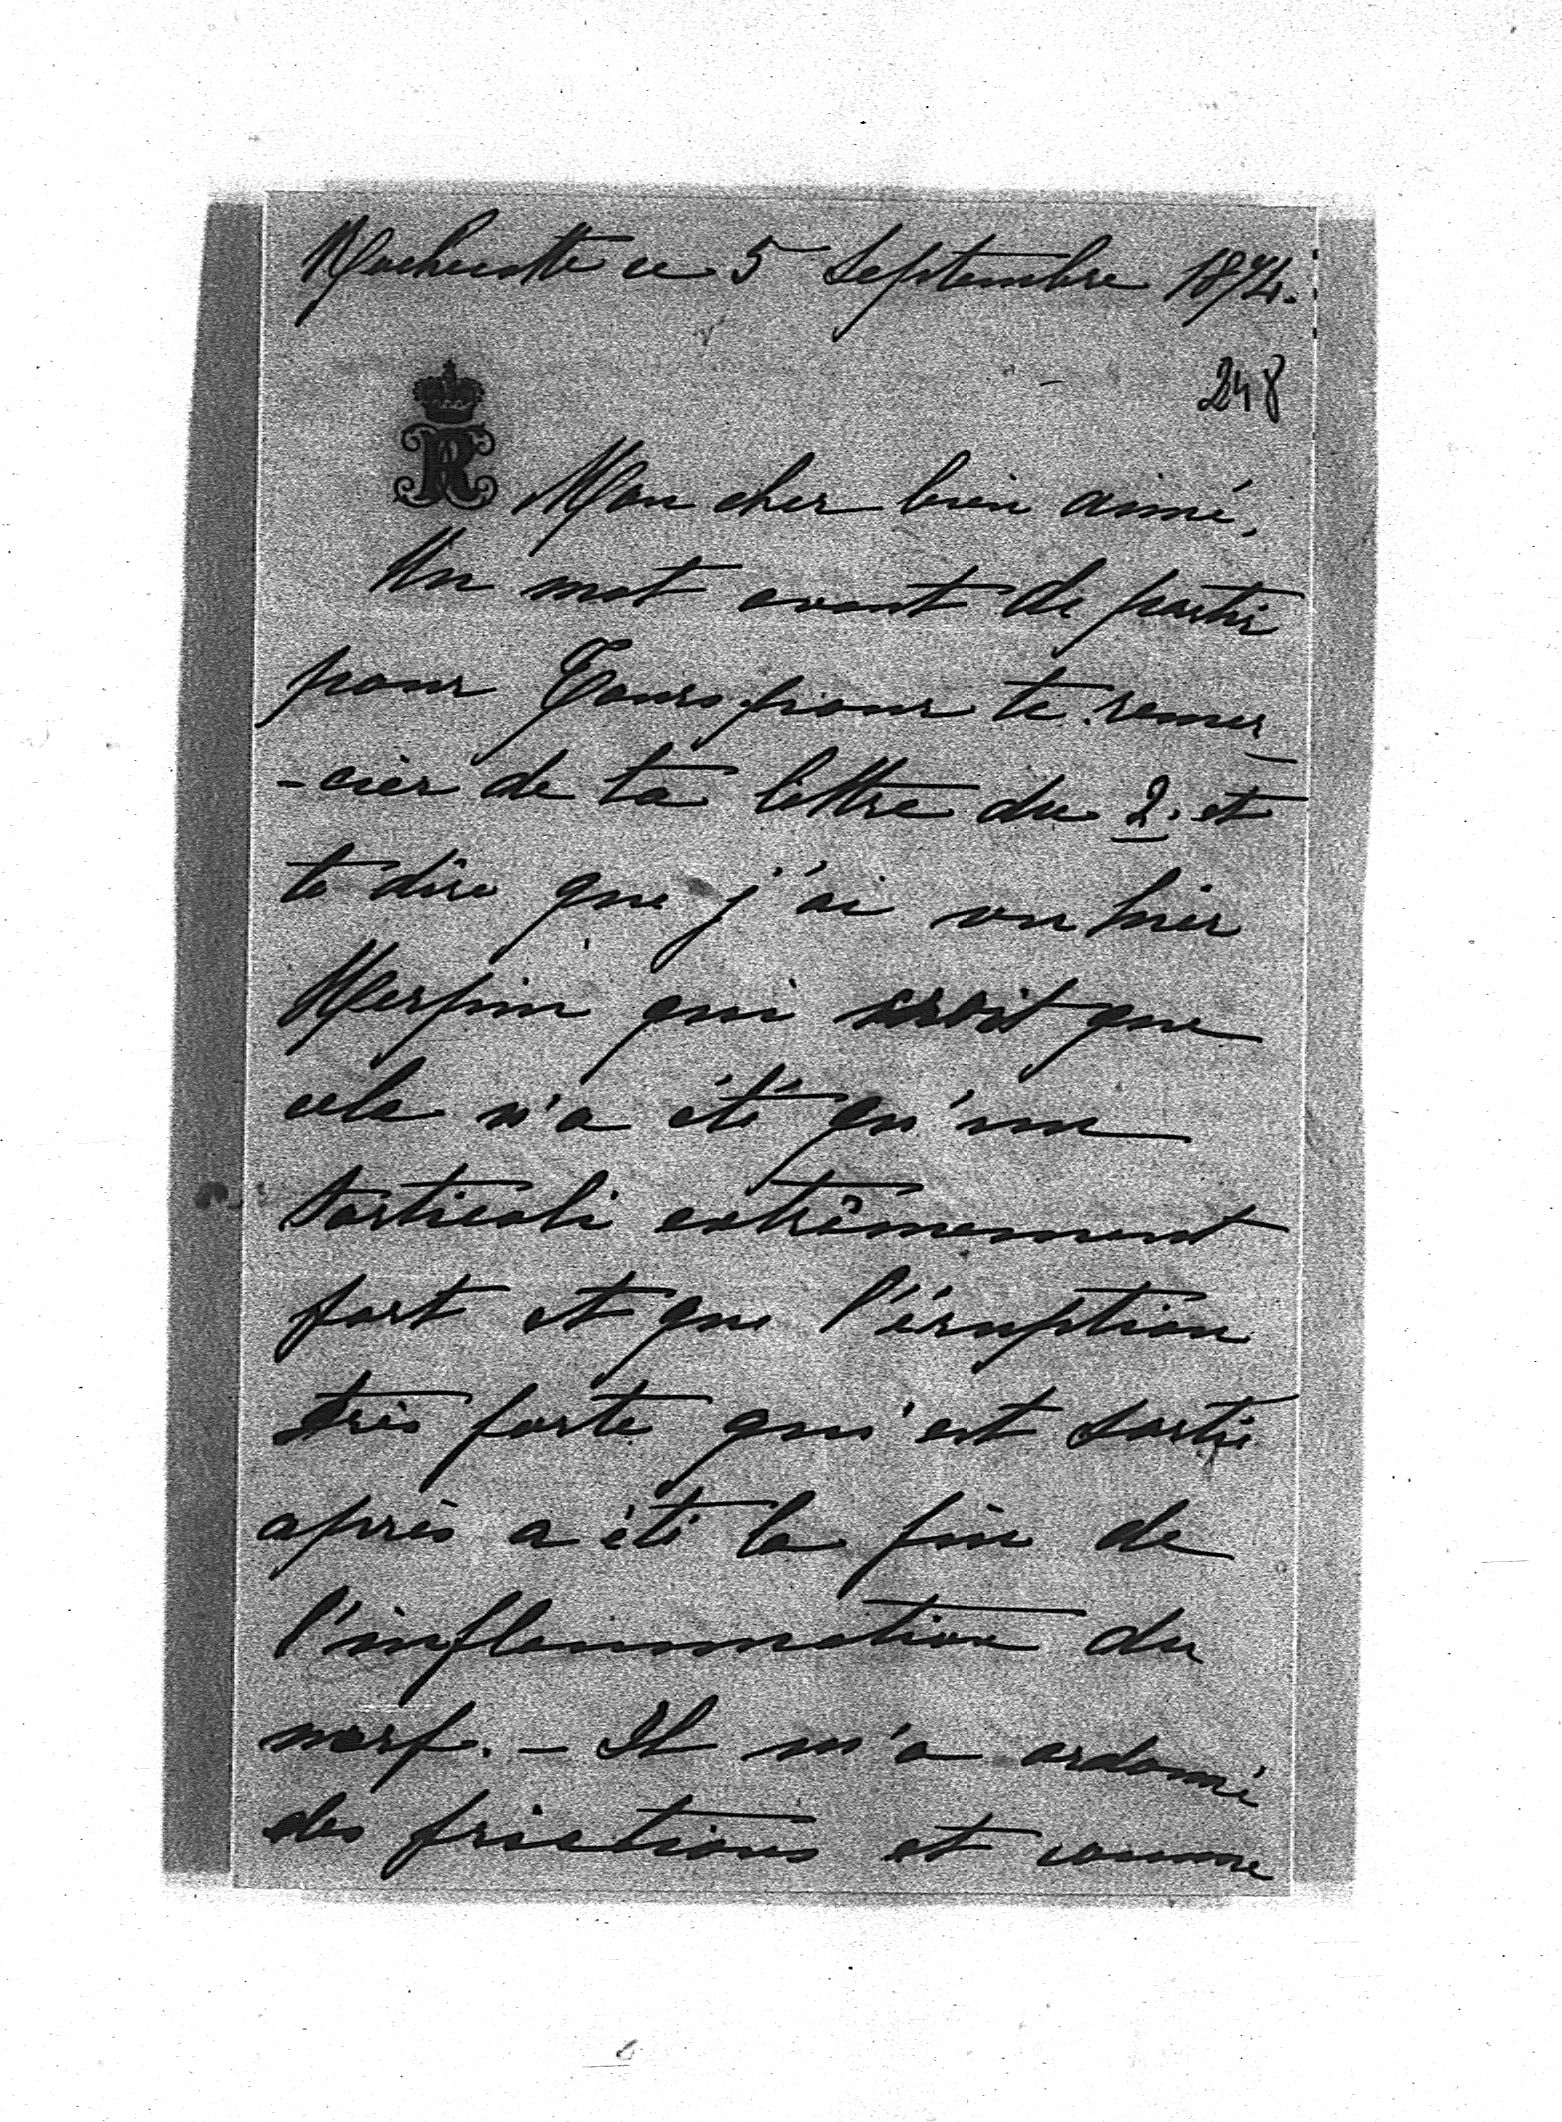 Rochecotte ce 5 Septembre 1874.
248
R
Mon cher bien aimé,
Un mot avant de partir
pour Tours pour te remer
-cier de ta lettre du 2. et
te dire que j'ai vu hier
Herpin qui croit que
cela n'a été qu'un
torticoli extrêmement
fort et que l'éruption
très forte qui est sortie
après a été la fin de
l'inflammation du
nerf. - Il m'a ordonné
des frictions et comme